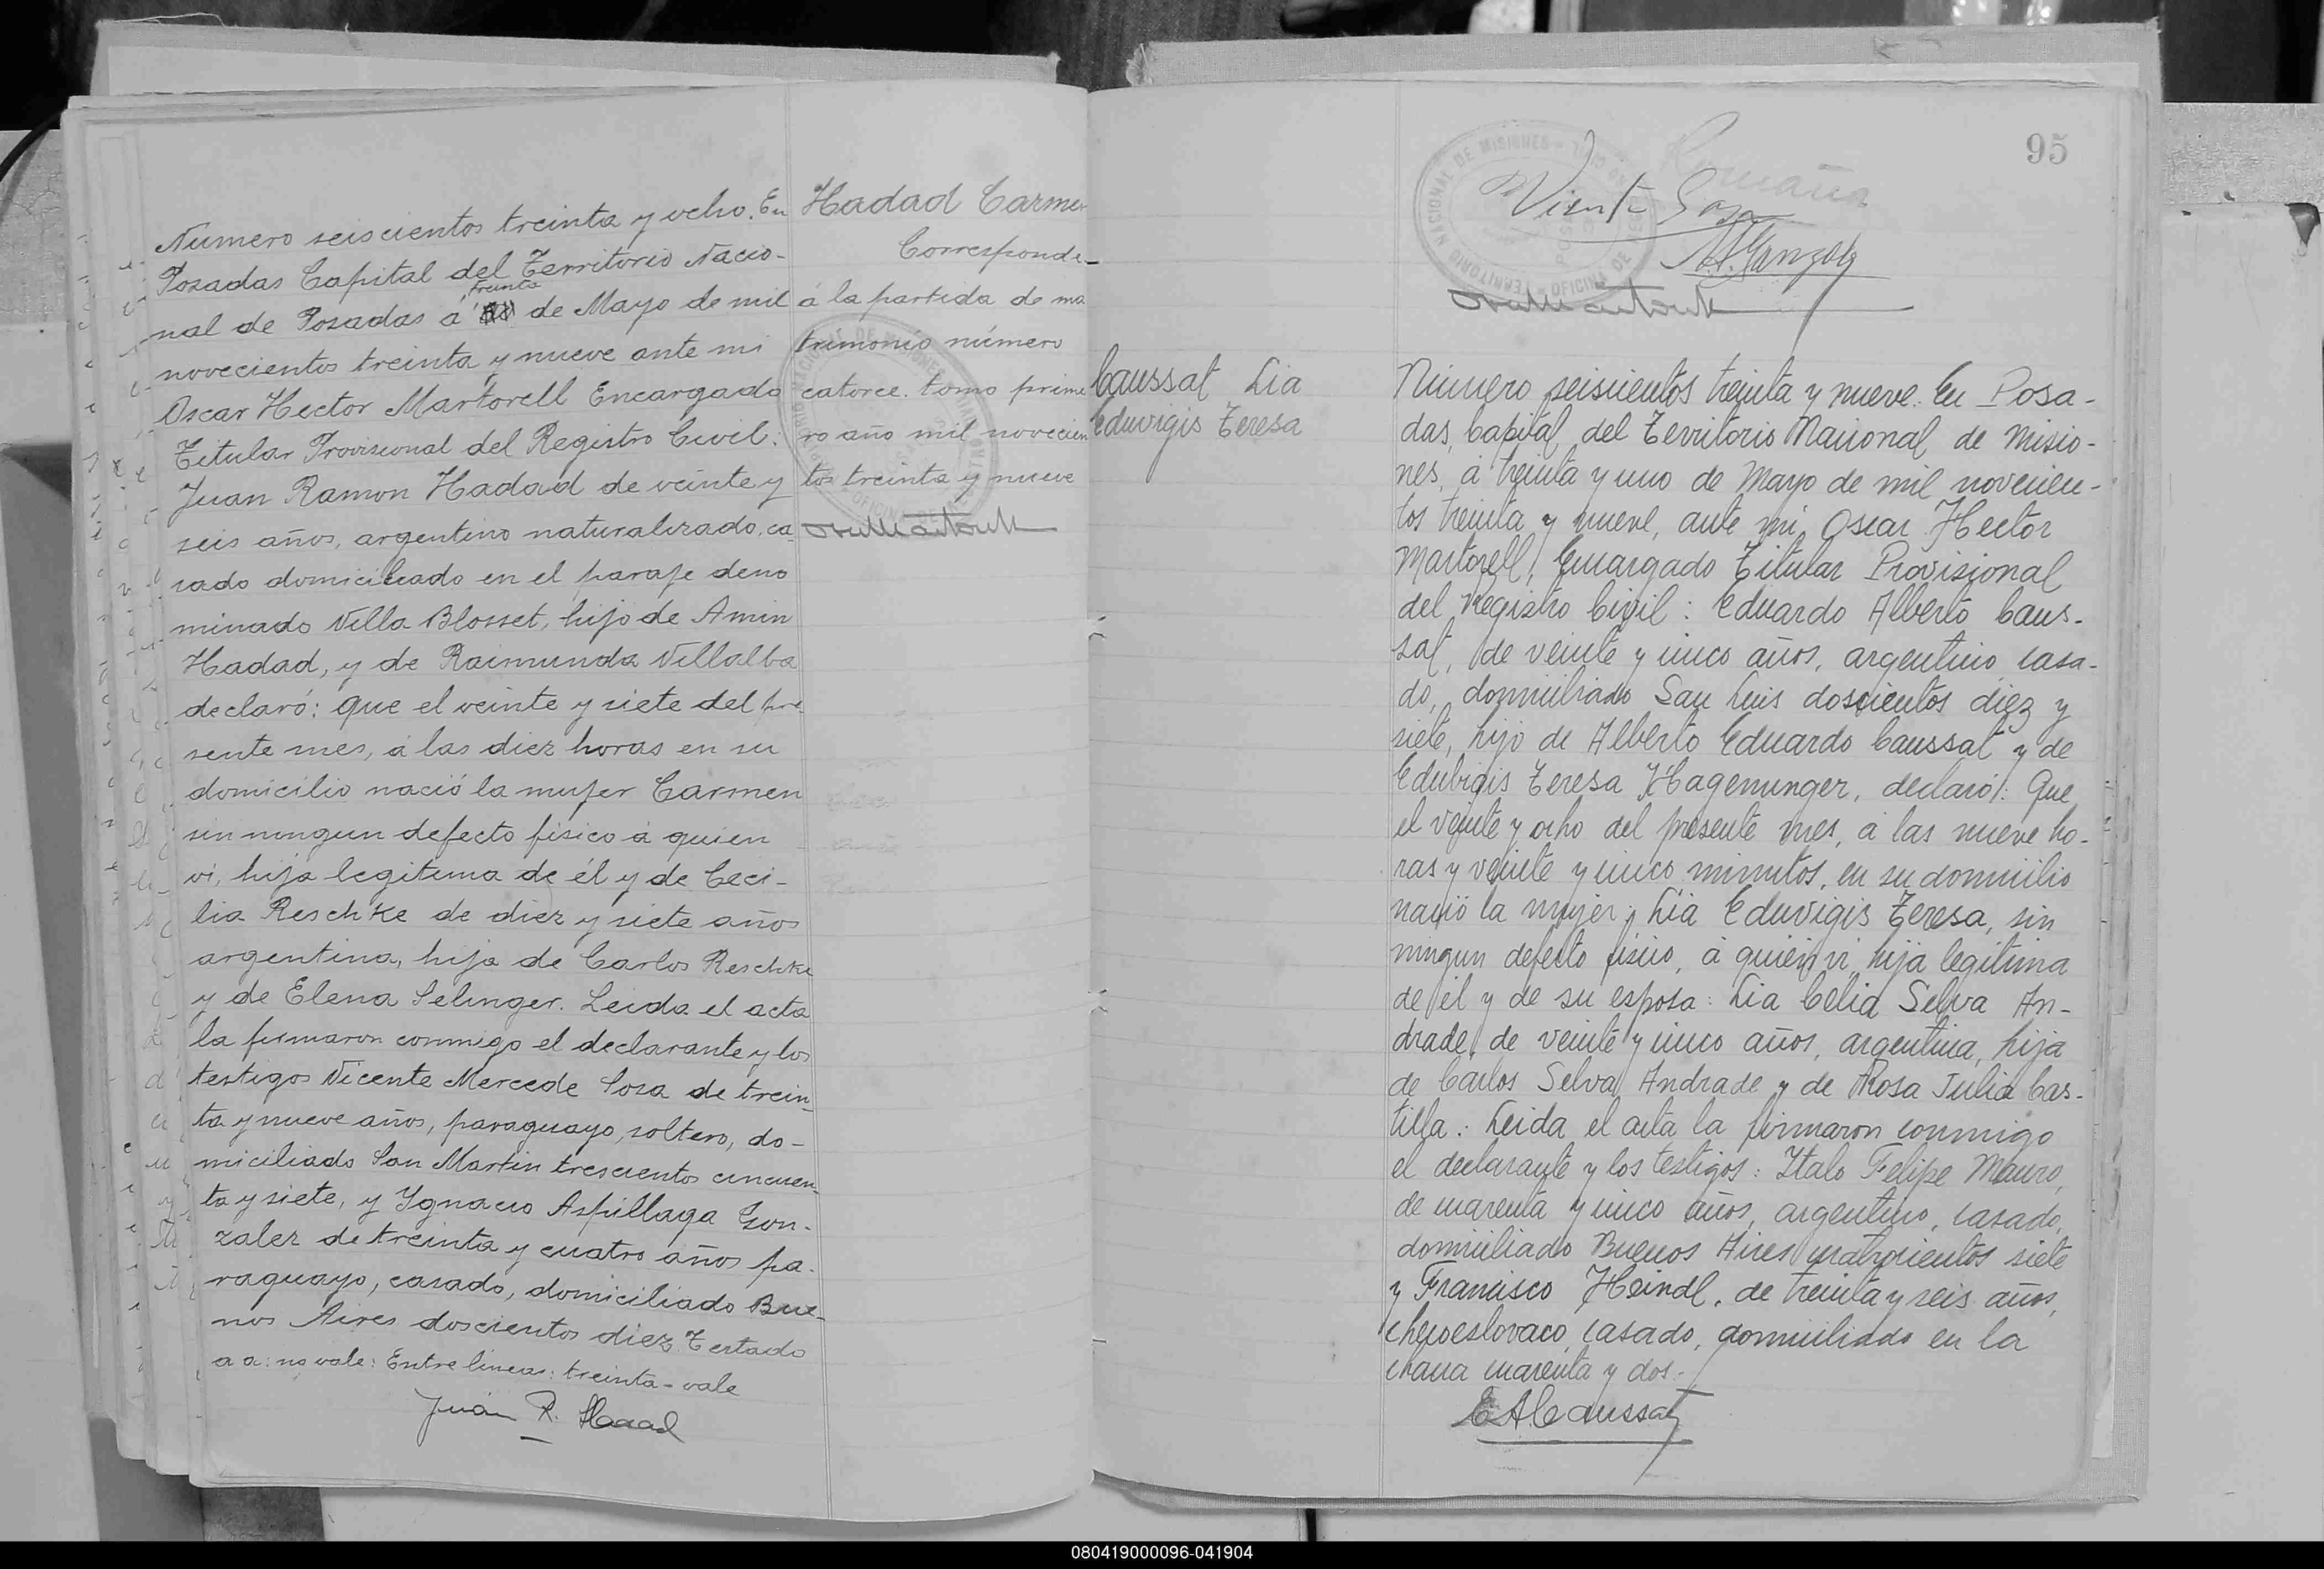 Numero seiscientos treinta y ocho. En
Posadas Capital del Territorio Nacio-
nal de Posadas á treinta de Mayo de mil
novecientos treinta y nueve ante mi
Oscar Hector Martorell Encargado
Titular Provisional del Registro Civil:
Juan Ramon Hadad de veinte y
seis años, argentino naturalizado, ca-
sado domiciliado en el paraje deno
minado Villa Blosset, hijo de Amin
Hadad, y de Raimunda Villalba
declaró: que el veinte y siete del pre-
sente mes, á las diez horas en su
domicilio nació la mujer Carmen
sin ningun defecto físico á quien
vi, hija legitima de él y de Ceci-
lia Reschke de diez y siete años
argentina, hija de Carlos Reschke
y de Elena Selinger. Leida el acta
la firmaron conmigo el declarante y los
testigos Vicente Mercede Sosa de trein-
ta y nueve años, paraguayo, soltero, do-
miciliado San Martin trescientos cincuen-
ta y siete, y Ygnacio Aspillaga Gon-
zalez de treinta y cuatro años pa-
raguayo, casado, domiciliado Bue-
nos Aires doscientos diez. Testado
a a: no vale: Entre lineas: treinta - vale
Juan R. Hadad
Hadad Carmen
Corresponde
á la partida de ma
trimonio número
catorce. tomo prime
ro año mil novecien
tos treinta y nueve
95
Vicente Sosa
Caussat Lia
Eduvigis Teresa
Número seiscientos treinta y nueve. En Posa-
das, Capital, del Territorio Nacional de Misio-
nes, á treinta y uno de Mayo de mil novecien-
tos treinta y nueve, ante mi, Oscar Hector
Martorell, Encargado Titular Provisional
del Registro Civil: Eduardo Alberto Caus-
sat, de veinte y cinco años, argentino, casa-
do, domiciliado San Luis doscientos diez y
siete, hijo de Alberto Eduardo Caussat y de
Edubigis Teresa Hagenunger, declaró: Que
el veinte y ocho del presente mes, á las nueve ho-
ras y veinte y cinco minutos, en su domicilio
nació la mujer, Lia Eduvigis Teresa, sin
ningun defecto físico, á quien vi, hija legitima
de él y de su esposa: Lia Celia Selva An-
drade, de veinte y cinco años, argentina, hija
de Carlos Selva Andrade y de Rosa Julia Cas-
tilla: Leida el acta la firmaron conmigo
el declarante y los testigos: Italo Felipe Mauro,
de cuarenta y cinco años, argentino, casado,
domiciliado Buenos Aires cuatrocientos siete
y Francisco Heindl, de treinta y seis años,
checoeslovaco, casado, domiciliado en la
chacra cuarenta y dos.-
E A Caussat
080419000096-041904